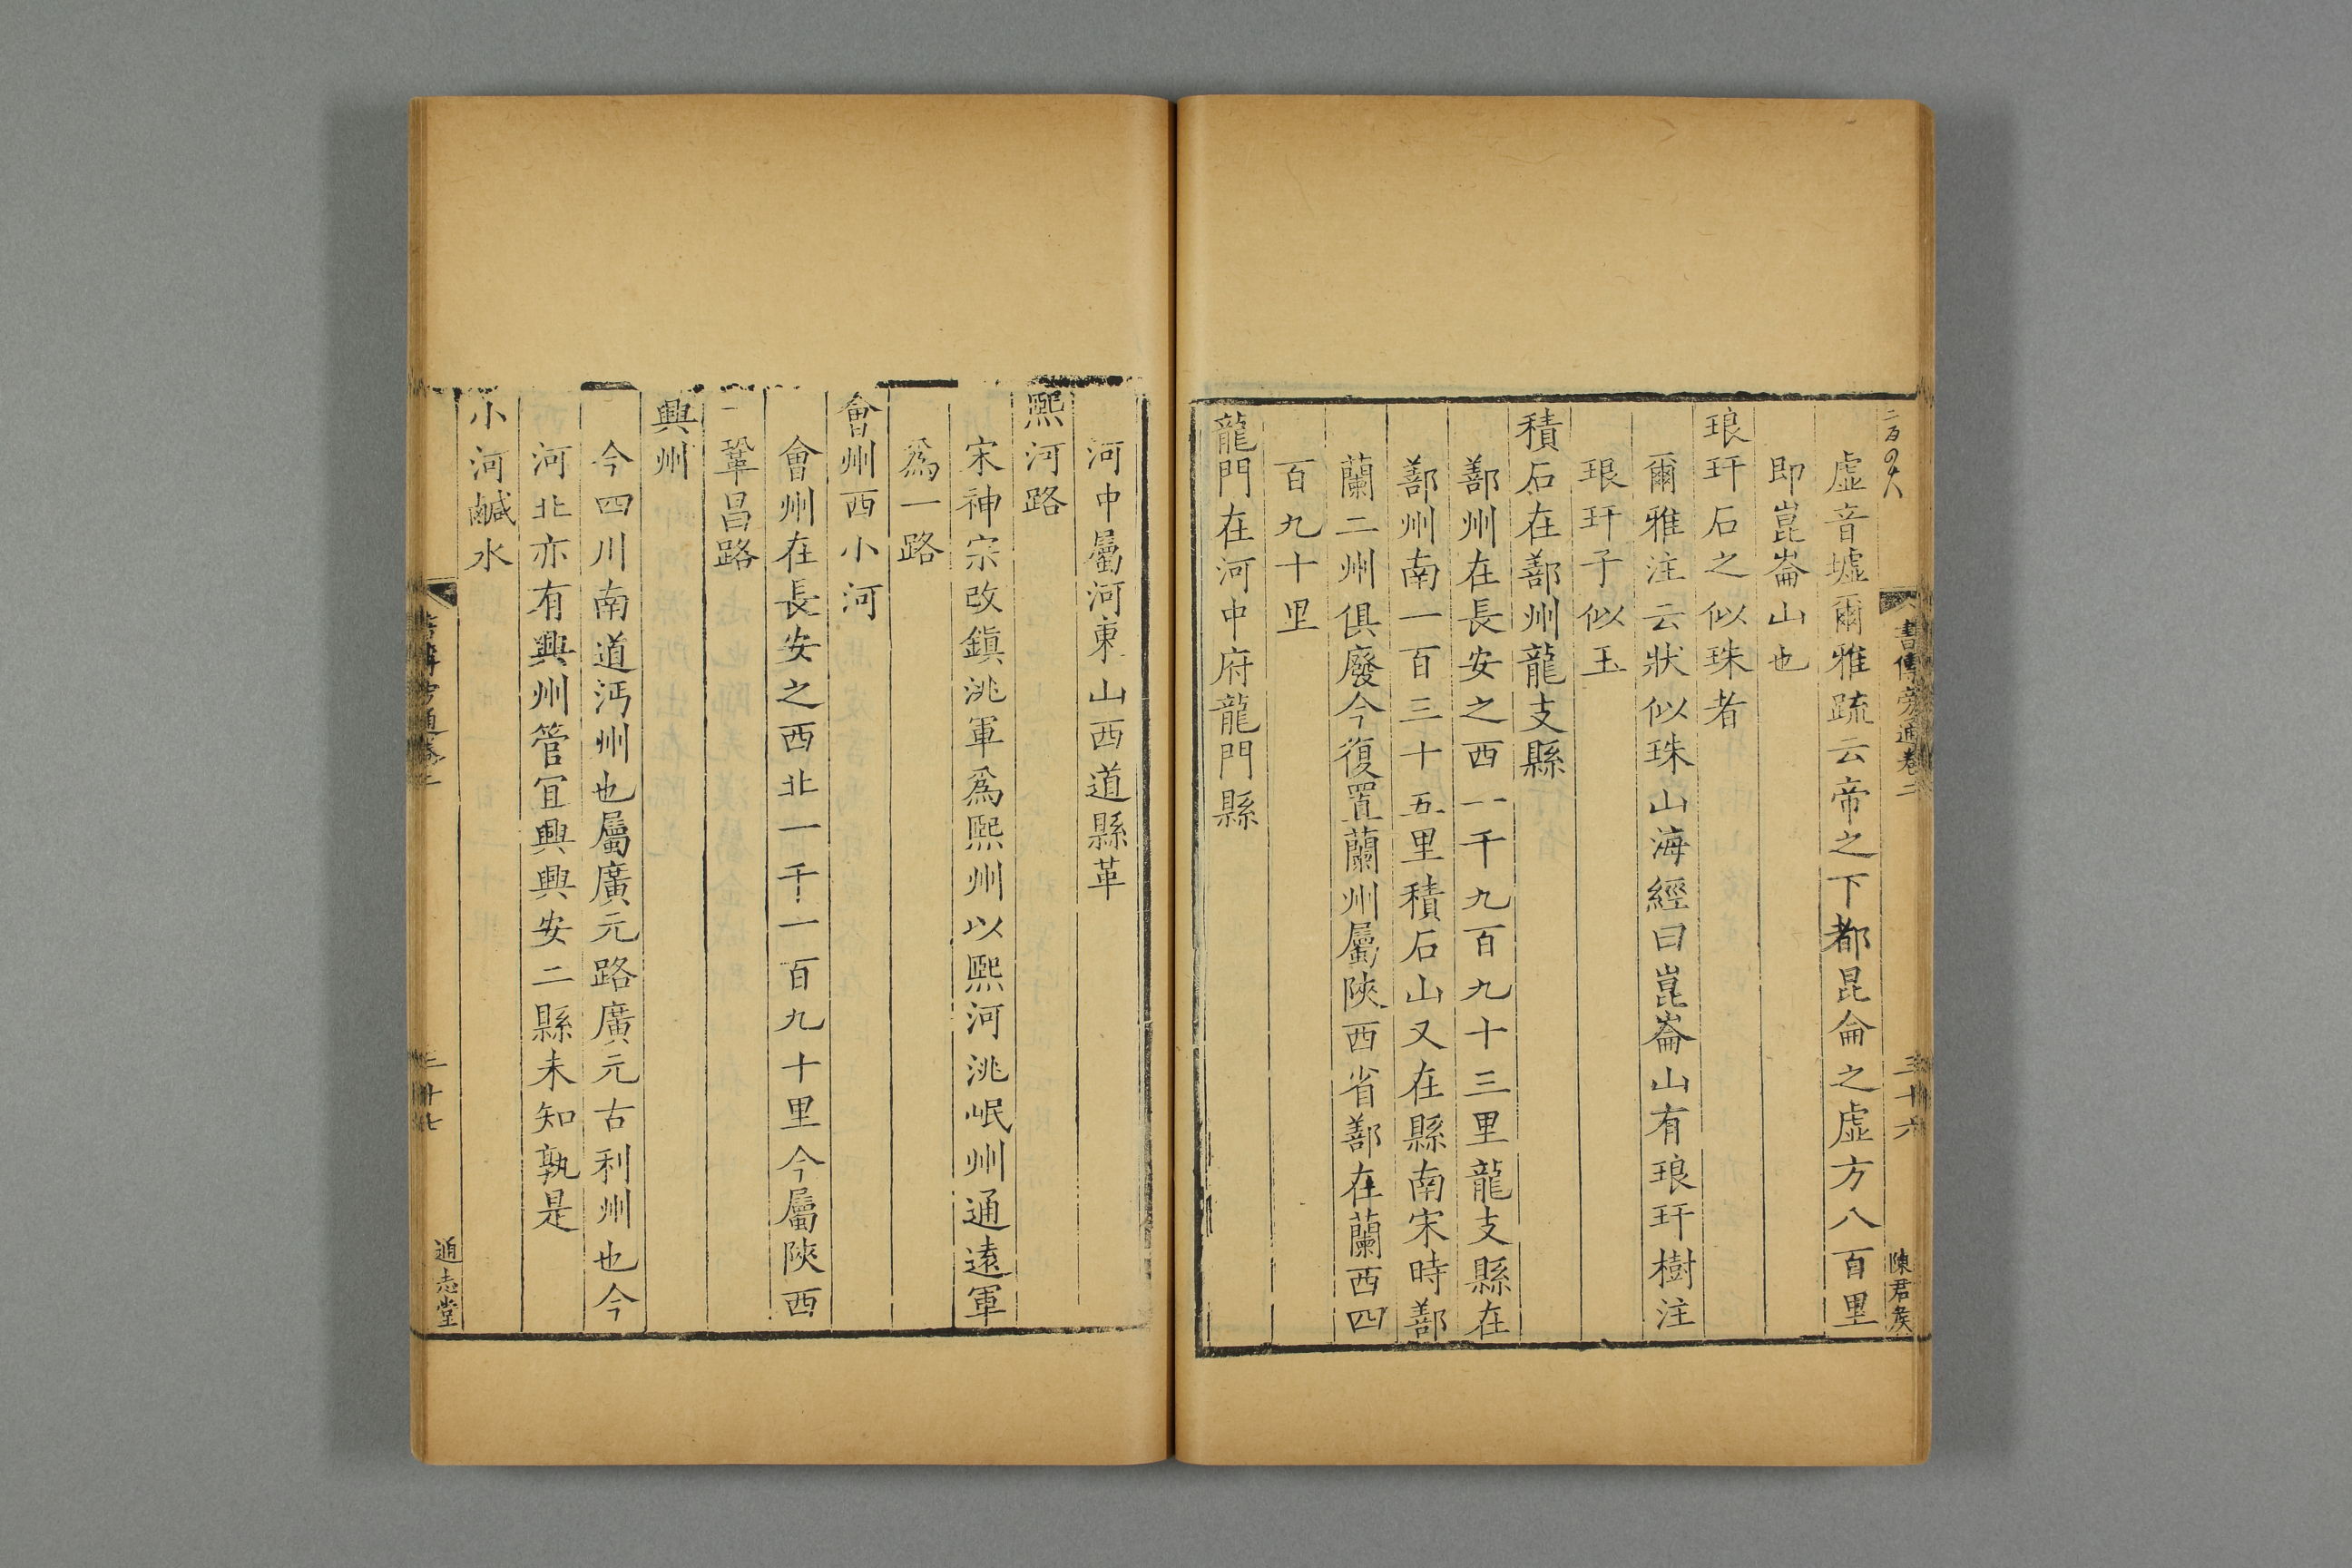 二百四十八
書傳旁通卷二
三十六
陳君矣
虛音墟爾雅疏云帝之下都昆侖之虛方八百里
即崑崙山也
琅玕石之似珠者
爾雅注云狀似珠山海經曰崑崙山有琅玕樹注
琅玕子似玉
積石在鄯州龍支縣
鄯州在長安之西一千九百九十三里龍支縣在
鄯州南一百三十五里積石山又在縣南宋時鄯
蘭二州俱廢今復置蘭州屬陜西省鄯在蘭西四
百九十里
龍門在河中府龍門縣
河中屬河東山西道縣革
熙河路
宋神宗改鎮洮軍爲熙州以熙河洮岷州通遠軍
爲一路
會州西小河
會州在長安之西北一千一百九十里今屬陜西
鞏昌路
興州
今四川南道沔州也屬廣元路廣元古利州也今
河北亦有興州管冝興興安二縣未知孰是
小河鹹水
書傳旁通卷二
三十七
通志堂